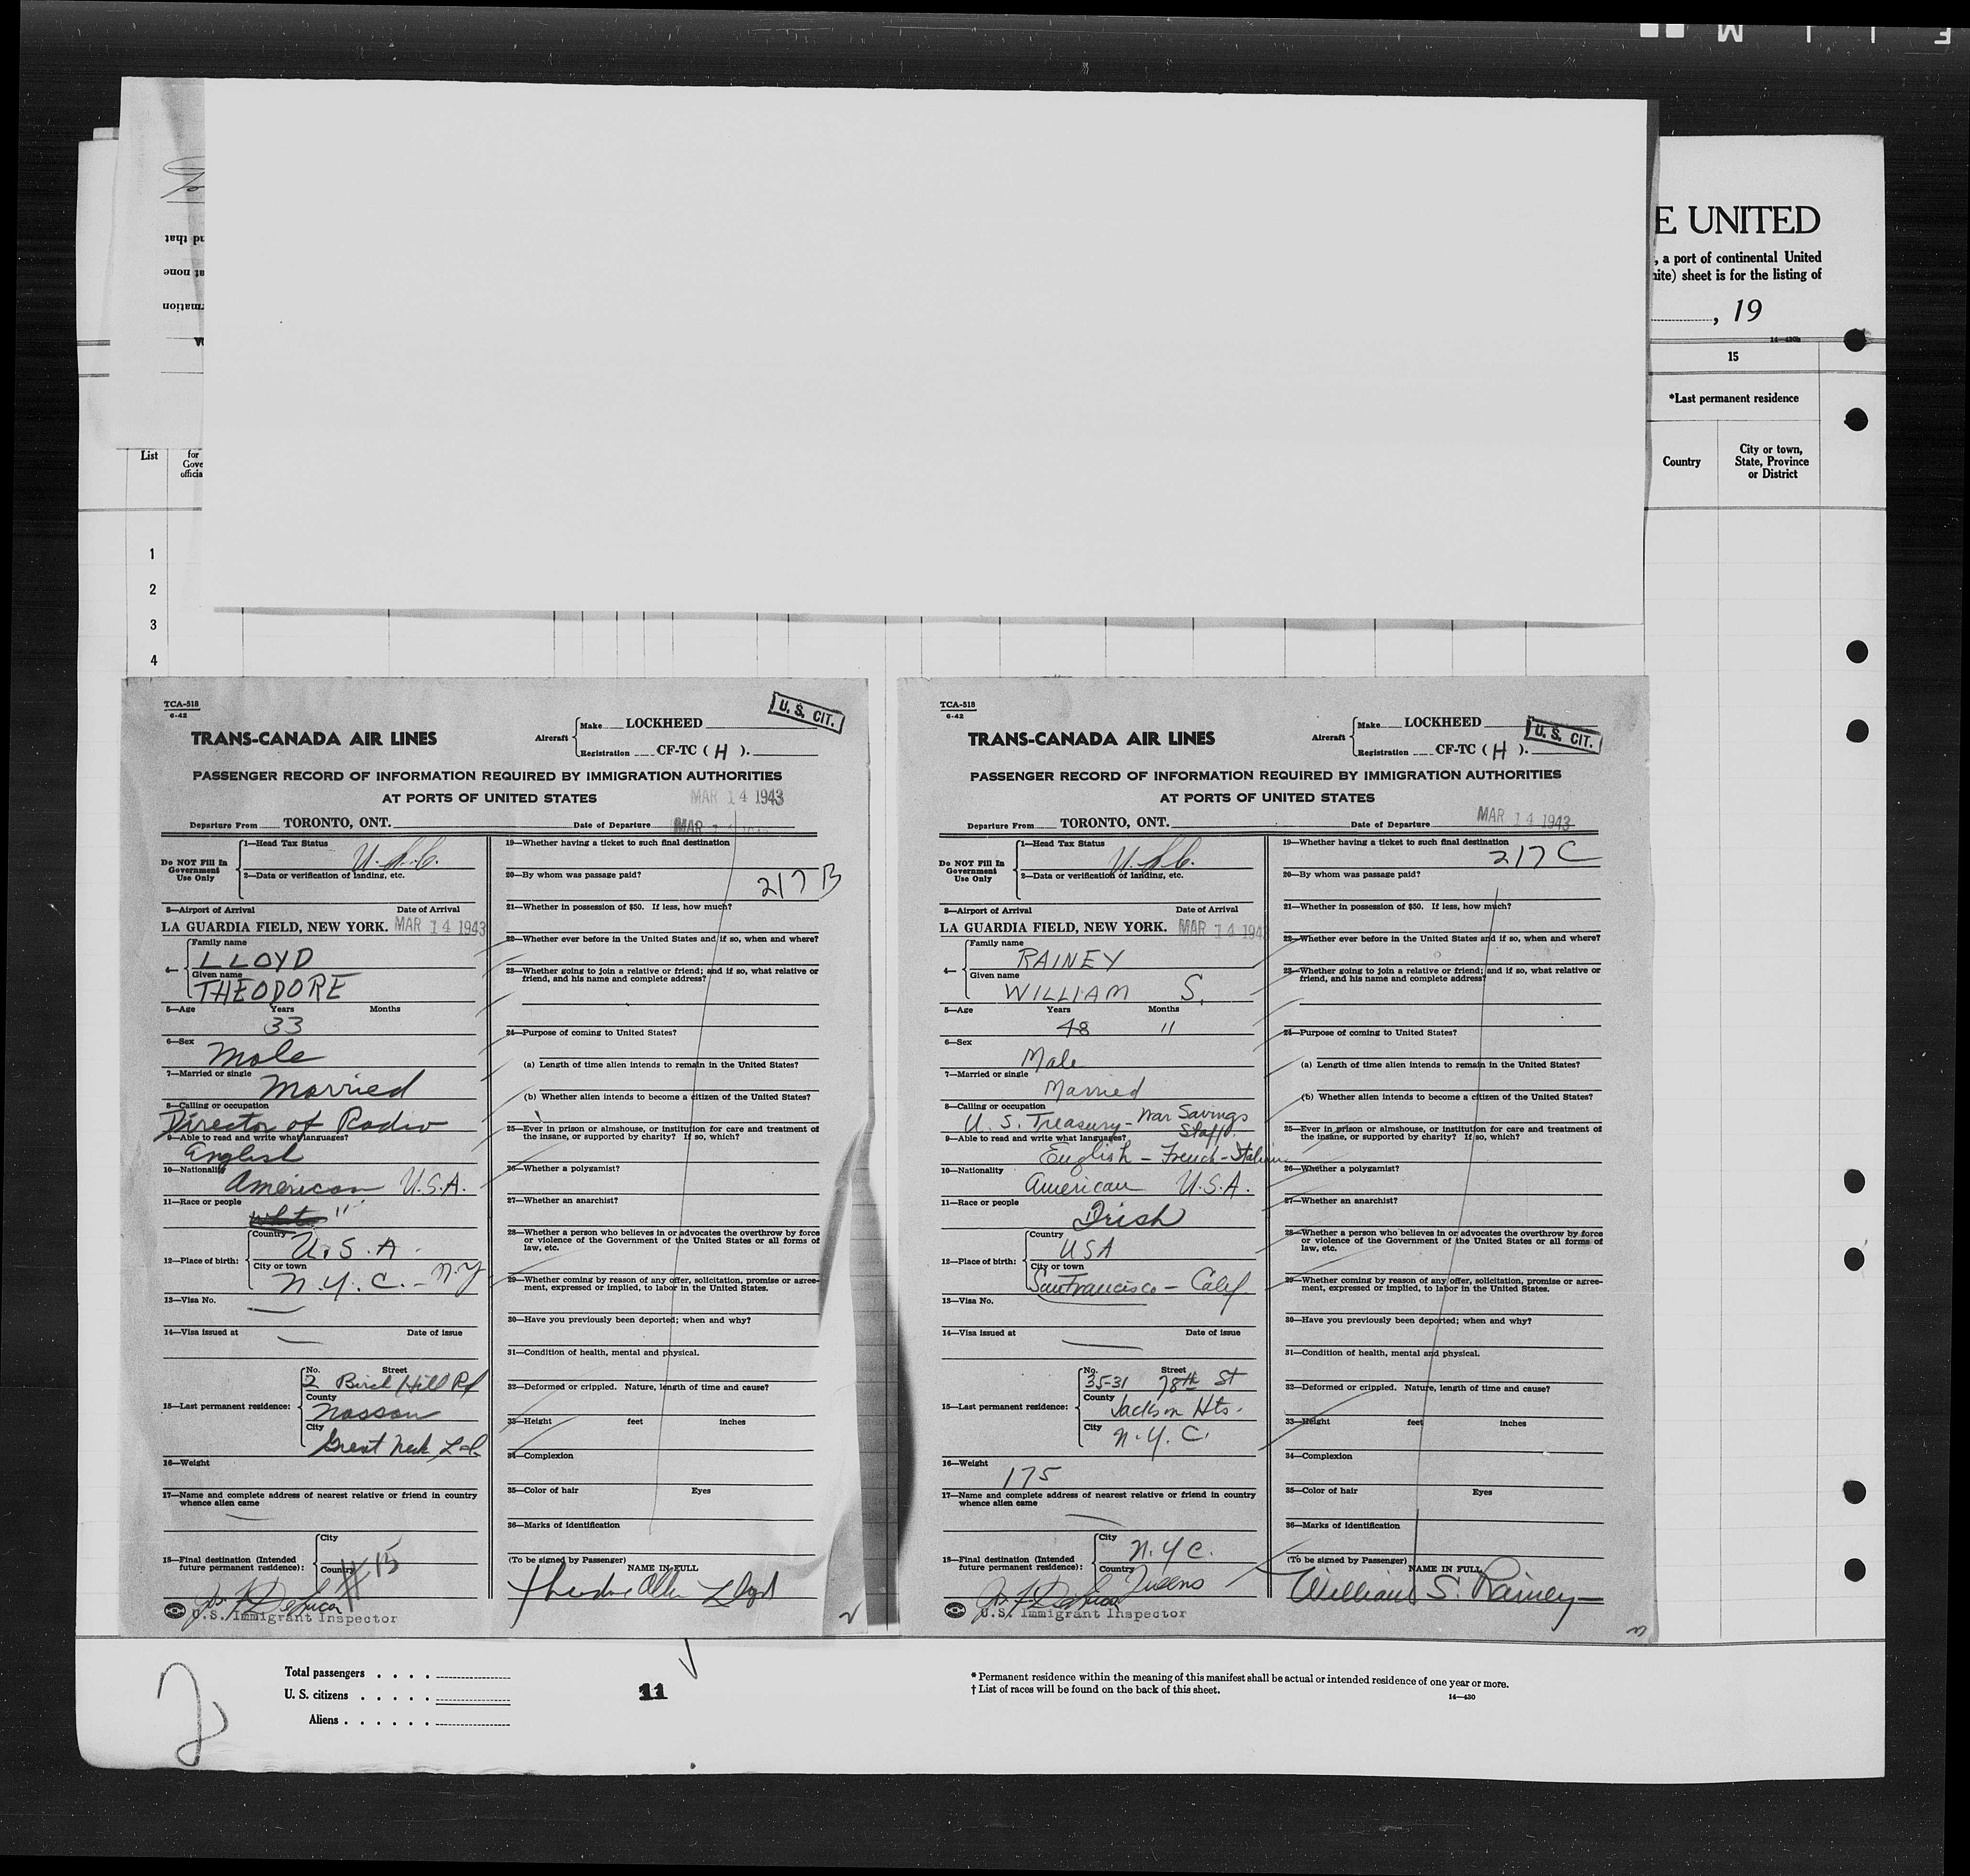 E UNITED
, a port of continental United
ite) sheet is for the listing of
, 19
14—430b
15
*Last permanent residence
Country
City or town,
State, Province
or District
List
for
Gove
officia
1
2
3
4
TCA-518
6-42
TRANS-CANADA AIR LINES
Aircraft
Make LOCKHEED
Registration CF-TC ( H ).
U. S. CIT.
PASSENGER RECORD OF INFORMATION REQUIRED BY IMMIGRATION AUTHORITIES
AT PORTS OF UNITED STATES
MAR 14 1943
Departure From TORONTO, ONT. Date of Departure MAR
Do NOT Fill In
Government
Use Only
1—Head Tax Status
U.S.C.
2—Data or verification of landing, etc.
3—Airport of Arrival Date of Arrival
LA GUARDIA FIELD, NEW YORK. MAR 14 1943
4—
Family name
LLOYD
Given name
THEODORE
5—Age Years Months
33
6—Sex
Male
7—Married or single
Married
8—Calling or occupation
Director of Radio
9—Able to read and write what languages?
English
10—Nationality
American U.S.A.
11—Race or people
White "
12—Place of birth:
Country
U.S.A.
City or town
N.Y.C. - N.Y
13—Visa No.
14—Visa issued at Date of issue
15—Last permanent residence:
No. Street
2 Birch Hill Rd
County
Nassau
City
Great Neck L.I.
16—Weight
17—Name and complete address of nearest relative or friend in country
whence alien came
18—Final destination (Intended
future permanent residence):
City
Country
# 15
U.S. Immigrant Inspector
19—Whether having a ticket to such final destination
20—By whom was passage paid?
217 B
21—Whether in possession of $50. If less, how much?
22—Whether ever before in the United States and if so, when and where?
23—Whether going to join a relative or friend; and if so, what relative or
friend, and his name and complete address?
24—Purpose of coming to United States?
(a) Length of time alien intends to remain in the United States?
(b) Whether alien intends to become a citizen of the United States?
25—Ever in prison or almshouse, or institution for care and treatment of
the insane, or supported by charity? If so, which?
26—Whether a polygamist?
27—Whether an anarchist?
28—Whether a person who believes in or advocates the overthrow by force
or violence of the Government of the United States or all forms of
law, etc.
29—Whether coming by reason of any offer, solicitation, promise or agree-
ment, expressed or implied, to labor in the United States.
30—Have you previously been deported; when and why?
31—Condition of health, mental and physical.
32—Deformed or crippled. Nature, length of time and cause?
33—Height feet inches
34—Complexion
35—Color of hair Eyes
36—Marks of identification
(To be signed by Passenger)
NAME IN FULL
Theodore Allen Lloyd
TCA-518
6-42
TRANS-CANADA AIR LINES
Aircraft
Make LOCKHEED
Registration CF-TC ( H ).
U. S. CIT.
PASSENGER RECORD OF INFORMATION REQUIRED BY IMMIGRATION AUTHORITIES
AT PORTS OF UNITED STATES
Departure From TORONTO, ONT. Date of Departure MAR 14 1943
Do NOT Fill In
Government
Use Only
1—Head Tax Status
U.S.C.
2—Data or verification of landing, etc.
3—Airport of Arrival Date of Arrival
LA GUARDIA FIELD, NEW YORK. MAR 14 194
4—
Family name
RAINEY
Given name
WILLIAM S.
5—Age Years Months
48 11
6—Sex
Male
7—Married or single
Married
8—Calling or occupation
U.S. Treasury - War Savings
Staff.
9—Able to read and write what languages?
English - French - Italian
10—Nationality
American U.S.A.
11—Race or people
Irish
12—Place of birth:
Country
USA
City or town
San Francisco - Calif
13—Visa No.
14—Visa issued at Date of issue
15—Last permanent residence:
No. Street
35-31 78th St
County
Jackson Hts.
City
N.Y.C.
16—Weight
175
17—Name and complete address of nearest relative or friend in country
whence alien came
18—Final destination (Intended
future permanent residence):
City
N.Y.C.
Country
Queens
U.S. Immigrant Inspector
19—Whether having a ticket to such final destination
217 C
20—By whom was passage paid?
21—Whether in possession of $50. If less, how much?
22—Whether ever before in the United States and if so, when and where?
23—Whether going to join a relative or friend; and if so, what relative or
friend, and his name and complete address?
24—Purpose of coming to United States?
(a) Length of time alien intends to remain in the United States?
(b) Whether alien intends to become a citizen of the United States?
25—Ever in prison or almshouse, or institution for care and treatment of
the insane, or supported by charity? If so, which?
26—Whether a polygamist?
27—Whether an anarchist?
28—Whether a person who believes in or advocates the overthrow by force
or violence of the Government of the United States or all forms of
law, etc.
29—Whether coming by reason of any offer, solicitation, promise or agree-
ment, expressed or implied, to labor in the United States.
30—Have you previously been deported; when and why?
31—Condition of health, mental and physical.
32—Deformed or crippled. Nature, length of time and cause?
33—Height feet inches
34—Complexion
35—Color of hair Eyes
36—Marks of identification
(To be signed by Passenger)
NAME IN FULL
William S. Rainey
2
Total passengers . . . .
U. S. citizens . . . . .
Aliens . . . . . .
11
* Permanent residence within the meaning of this manifest shall be actual or intended residence of one year or more.
† List of races will be found on the back of this sheet.
14—430